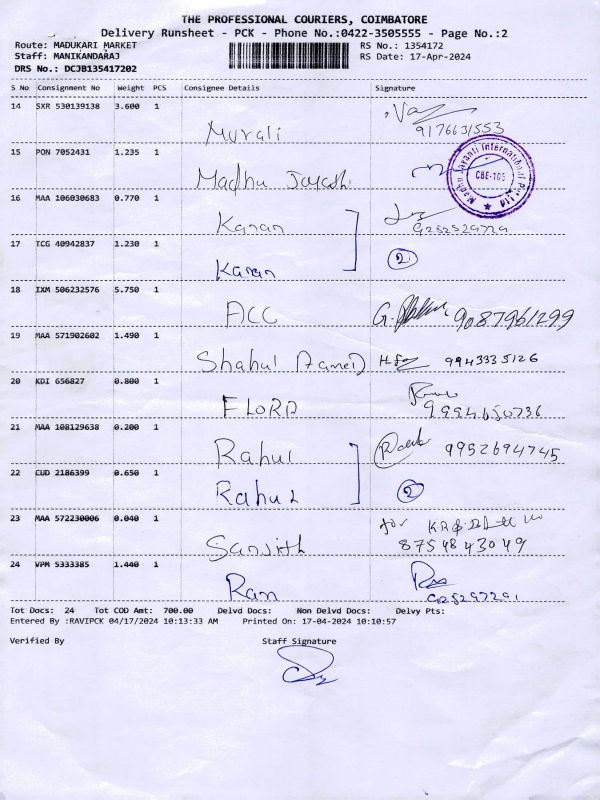 THE PROFESSIONAL COURIERS, COIMBATORE
Delivery Runsheet - PCK - Phone No.:0422-3505555 - Page No.:2
Route: MADUKARI MARKET
RS No.: 1354172
Staff: MANIKANDARAJ
RS Date: 17-Apr-2024
DRS No.: DCJB135417202
S No Consignment No Weight PCS Consignee Details Signature
14 SXR 530139138 3.600 1
Murali
9176631553
15 PON 7052431 1.235 1
Madhu Jayesh
Madhu Jayanti International Pvt. Ltd
CBE-105
16 MAA 106030683 0.770 1
Karan
17 TCG 40942837 1.230 1
Karan
2
18 IXM 506232576 5.750 1
ACC
9087961299
19 MAA 571902602 1.490 1
Shahul Hameed
9943335126
20 KDI 656827 0.800 1
FLORA
9994650736
21 MAA 108129638 0.200 1
Rahul
9952694745
22 CUD 2186399 0.650 1
Rahul
2
23 MAA 572230006 0.040 1
for
Sanjith
8754843049
24 VPM 5333385 1.440 1
Ram
Tot Docs: 24 Tot COD Amt: 700.00 Delvd Docs: Non Delvd Docs: Delvy Pts:
Entered By :RAVIPCK 04/17/2024 10:13:33 AM Printed On: 17-04-2024 10:10:57
Verified By
Staff Signature